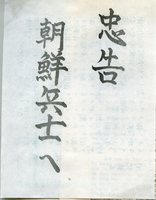 忠告
朝鮮兵士へ